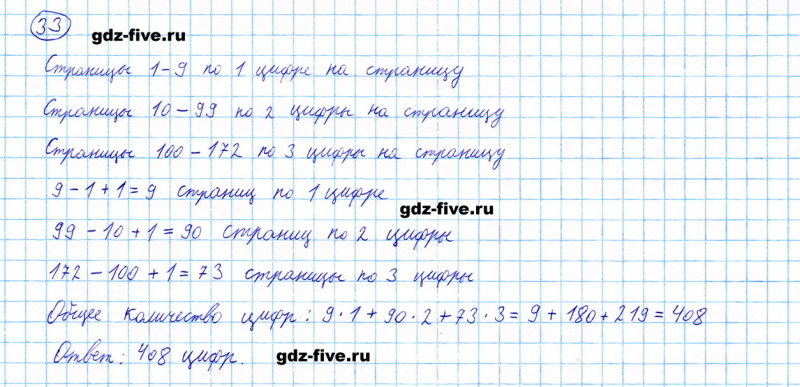 33
gdz-five.ru
Страницы 1 – 9 по 1 цифре на страницу
Страницы 10 – 99 по 2 цифры на страницу
Страницы 100 – 172 по 3 цифры на страницу
9 – 1 + 1 = 9 страниц по 1 цифре
gdz-five.ru
99 – 10 + 1 = 90 страниц по 2 цифры
172 – 100 + 1 = 73 страницы по 3 цифры
Общее количество цифр: 9 · 1 + 90 · 2 + 73 · 3 = 9 + 180 + 219 = 408
Ответ: 408 цифр.
gdz-five.ru